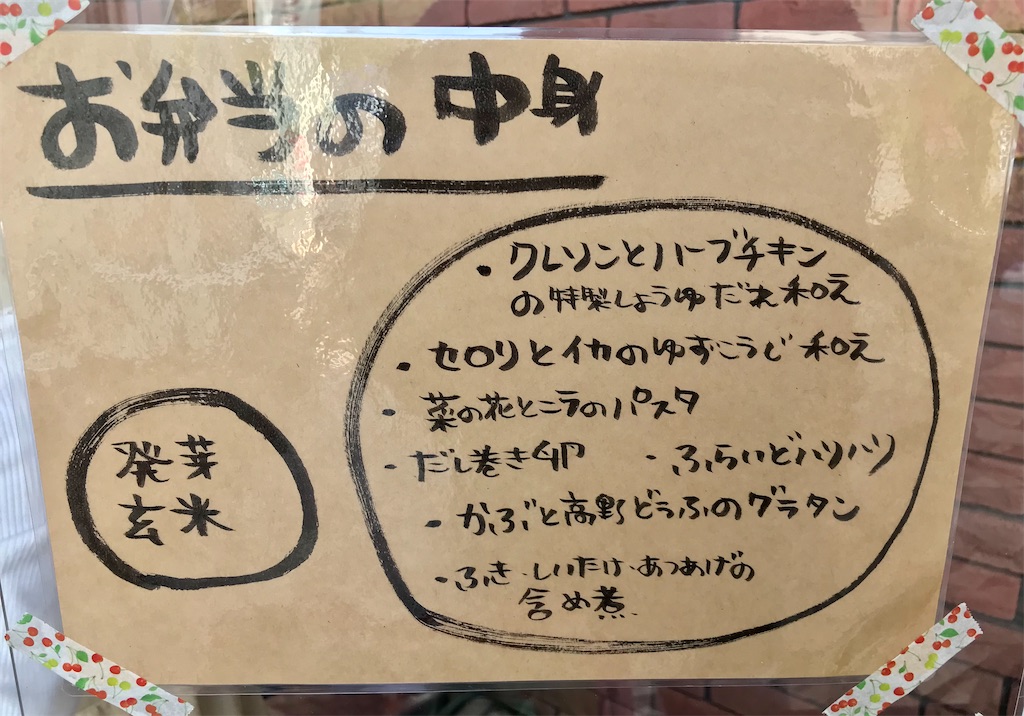 お弁当の中身
・クレソンとハーブチキン
の特製しょうゆだれ和え
・セロリとイカのゆずこうじ和え
・菜の花とニラのパスタ
・だし巻き卵 ・ふらいどパリパリ
・かぶと高野どうふのグラタン
・ふき・しいたけ・あつあげの
含め煮
発芽
玄米